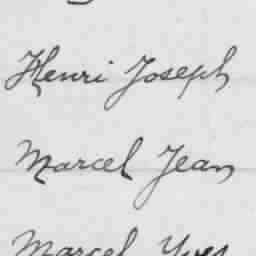 Henri Joseph
Marcel Jean
Marcel Yves